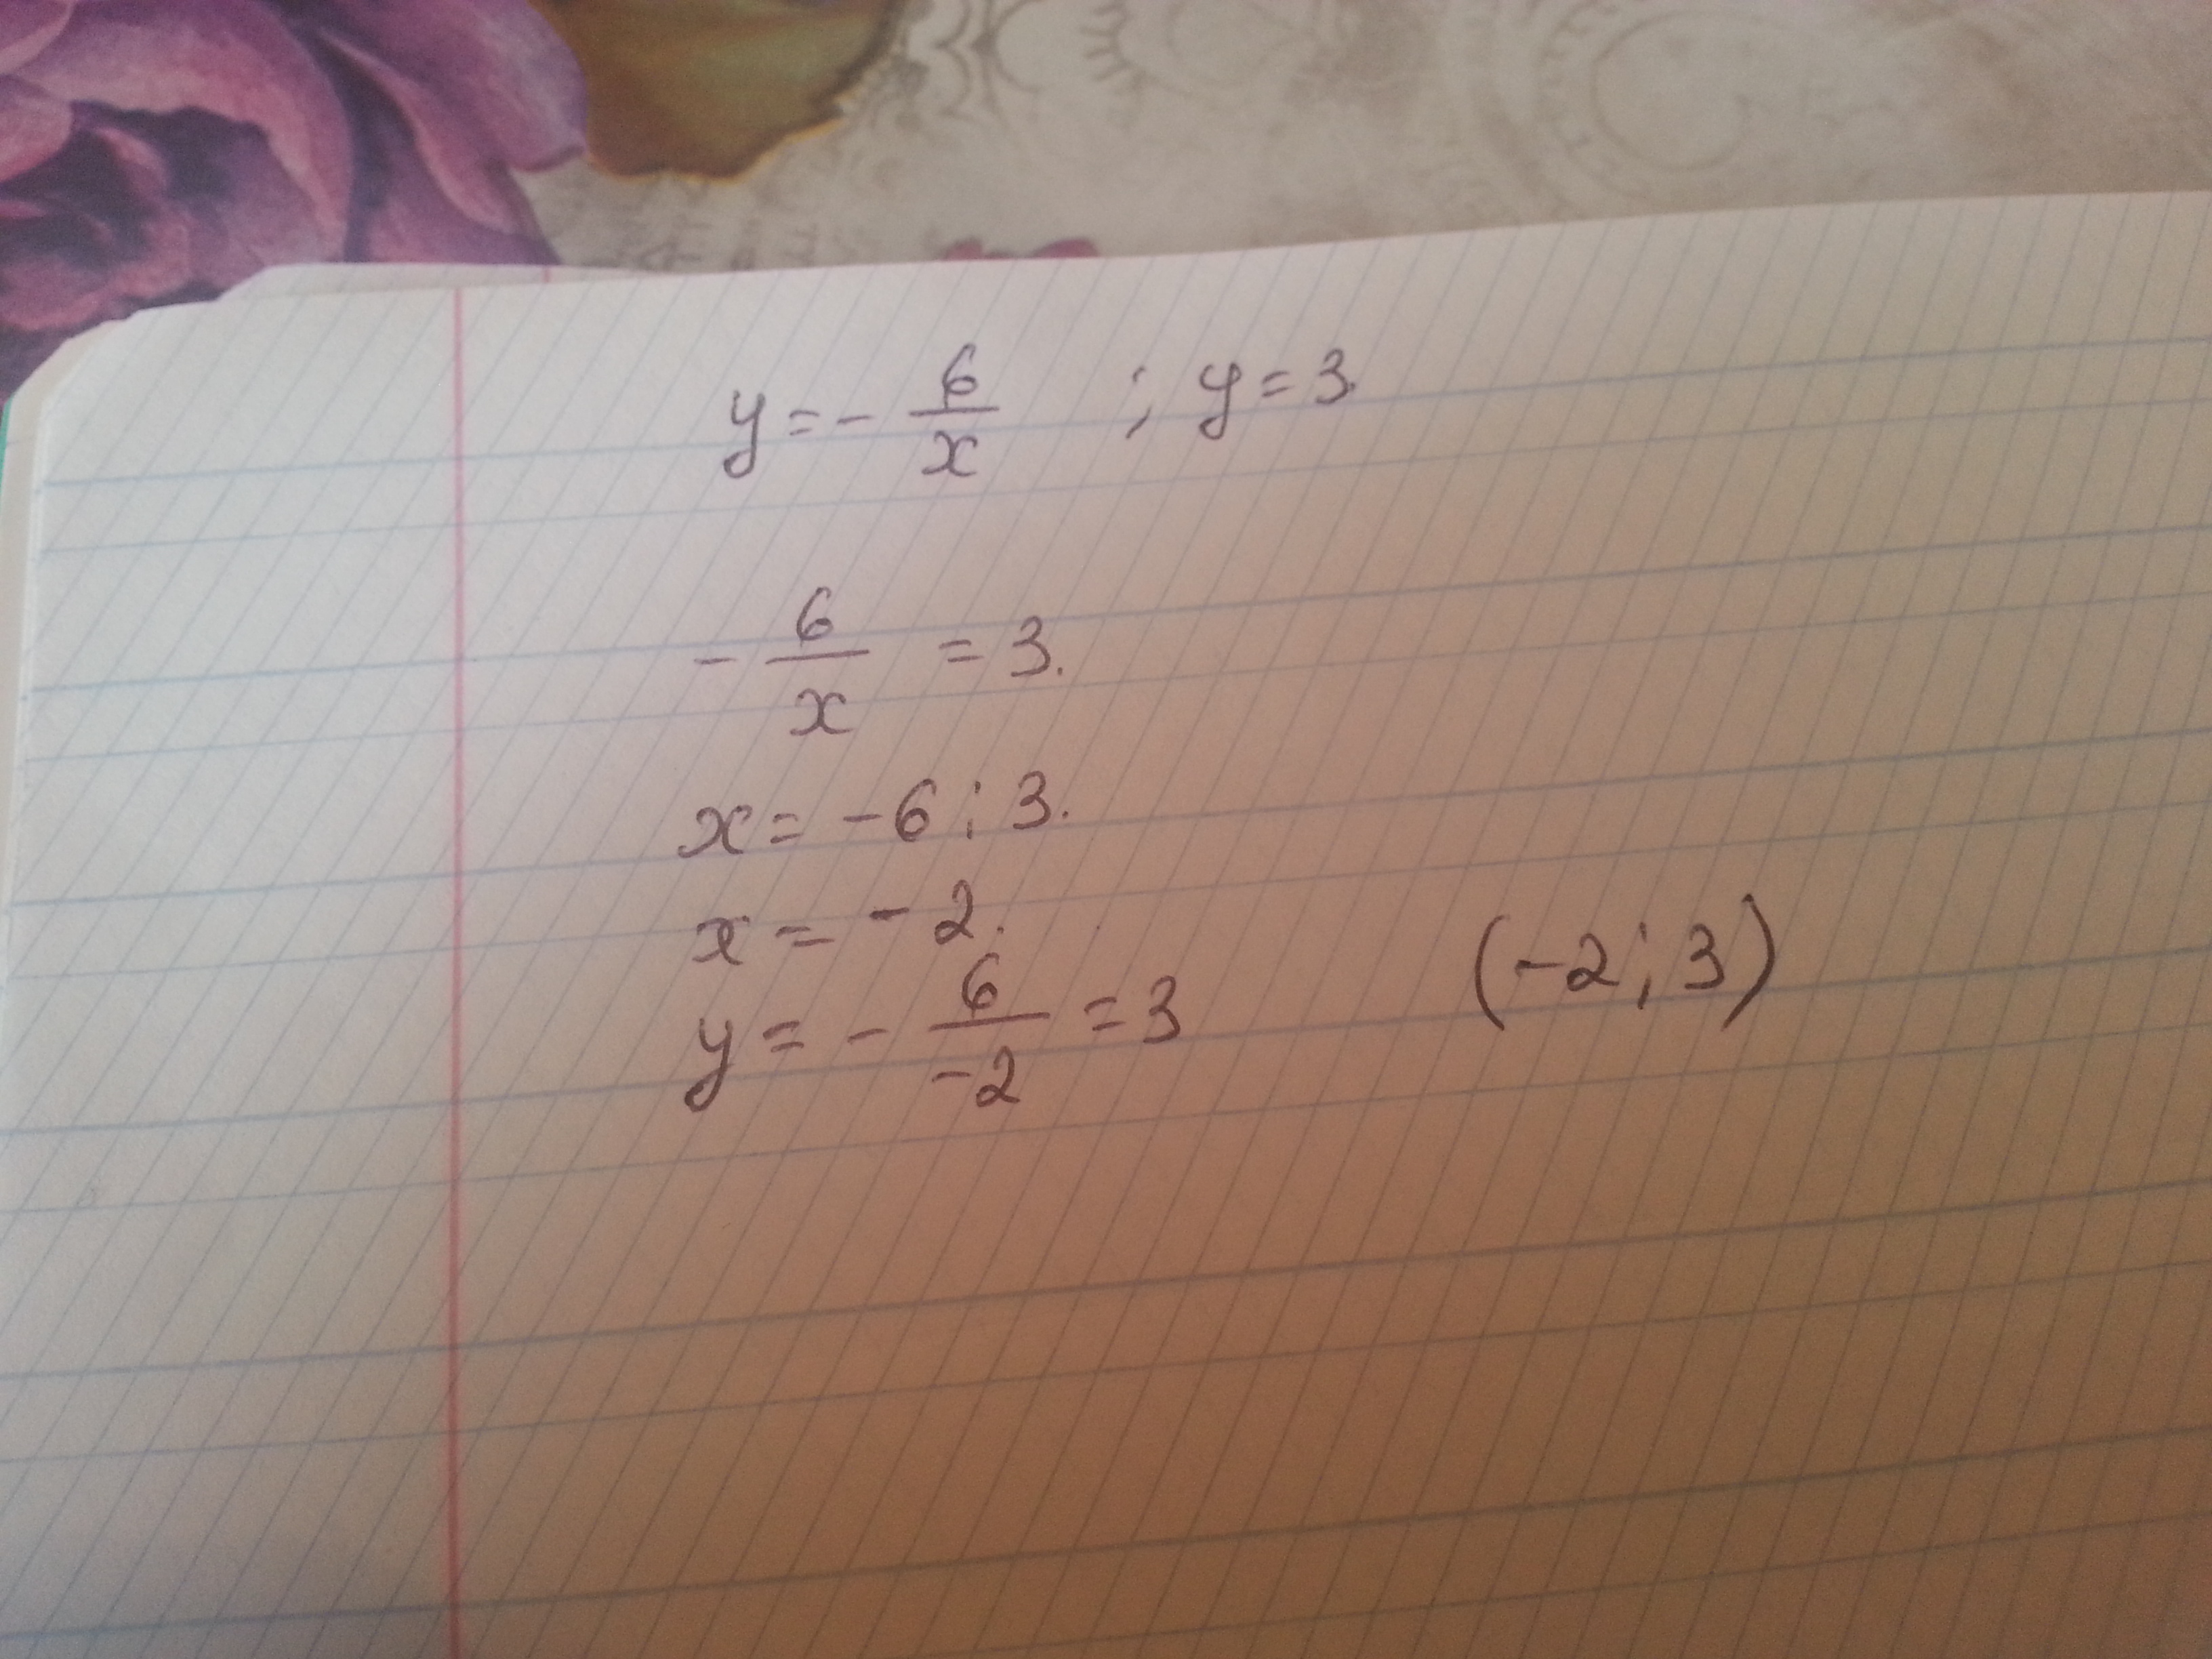 y = - 6/x ; y = 3.
- 6/x = 3.
x = -6 : 3.
x = -2.
y = - 6/-2 = 3
(-2; 3)